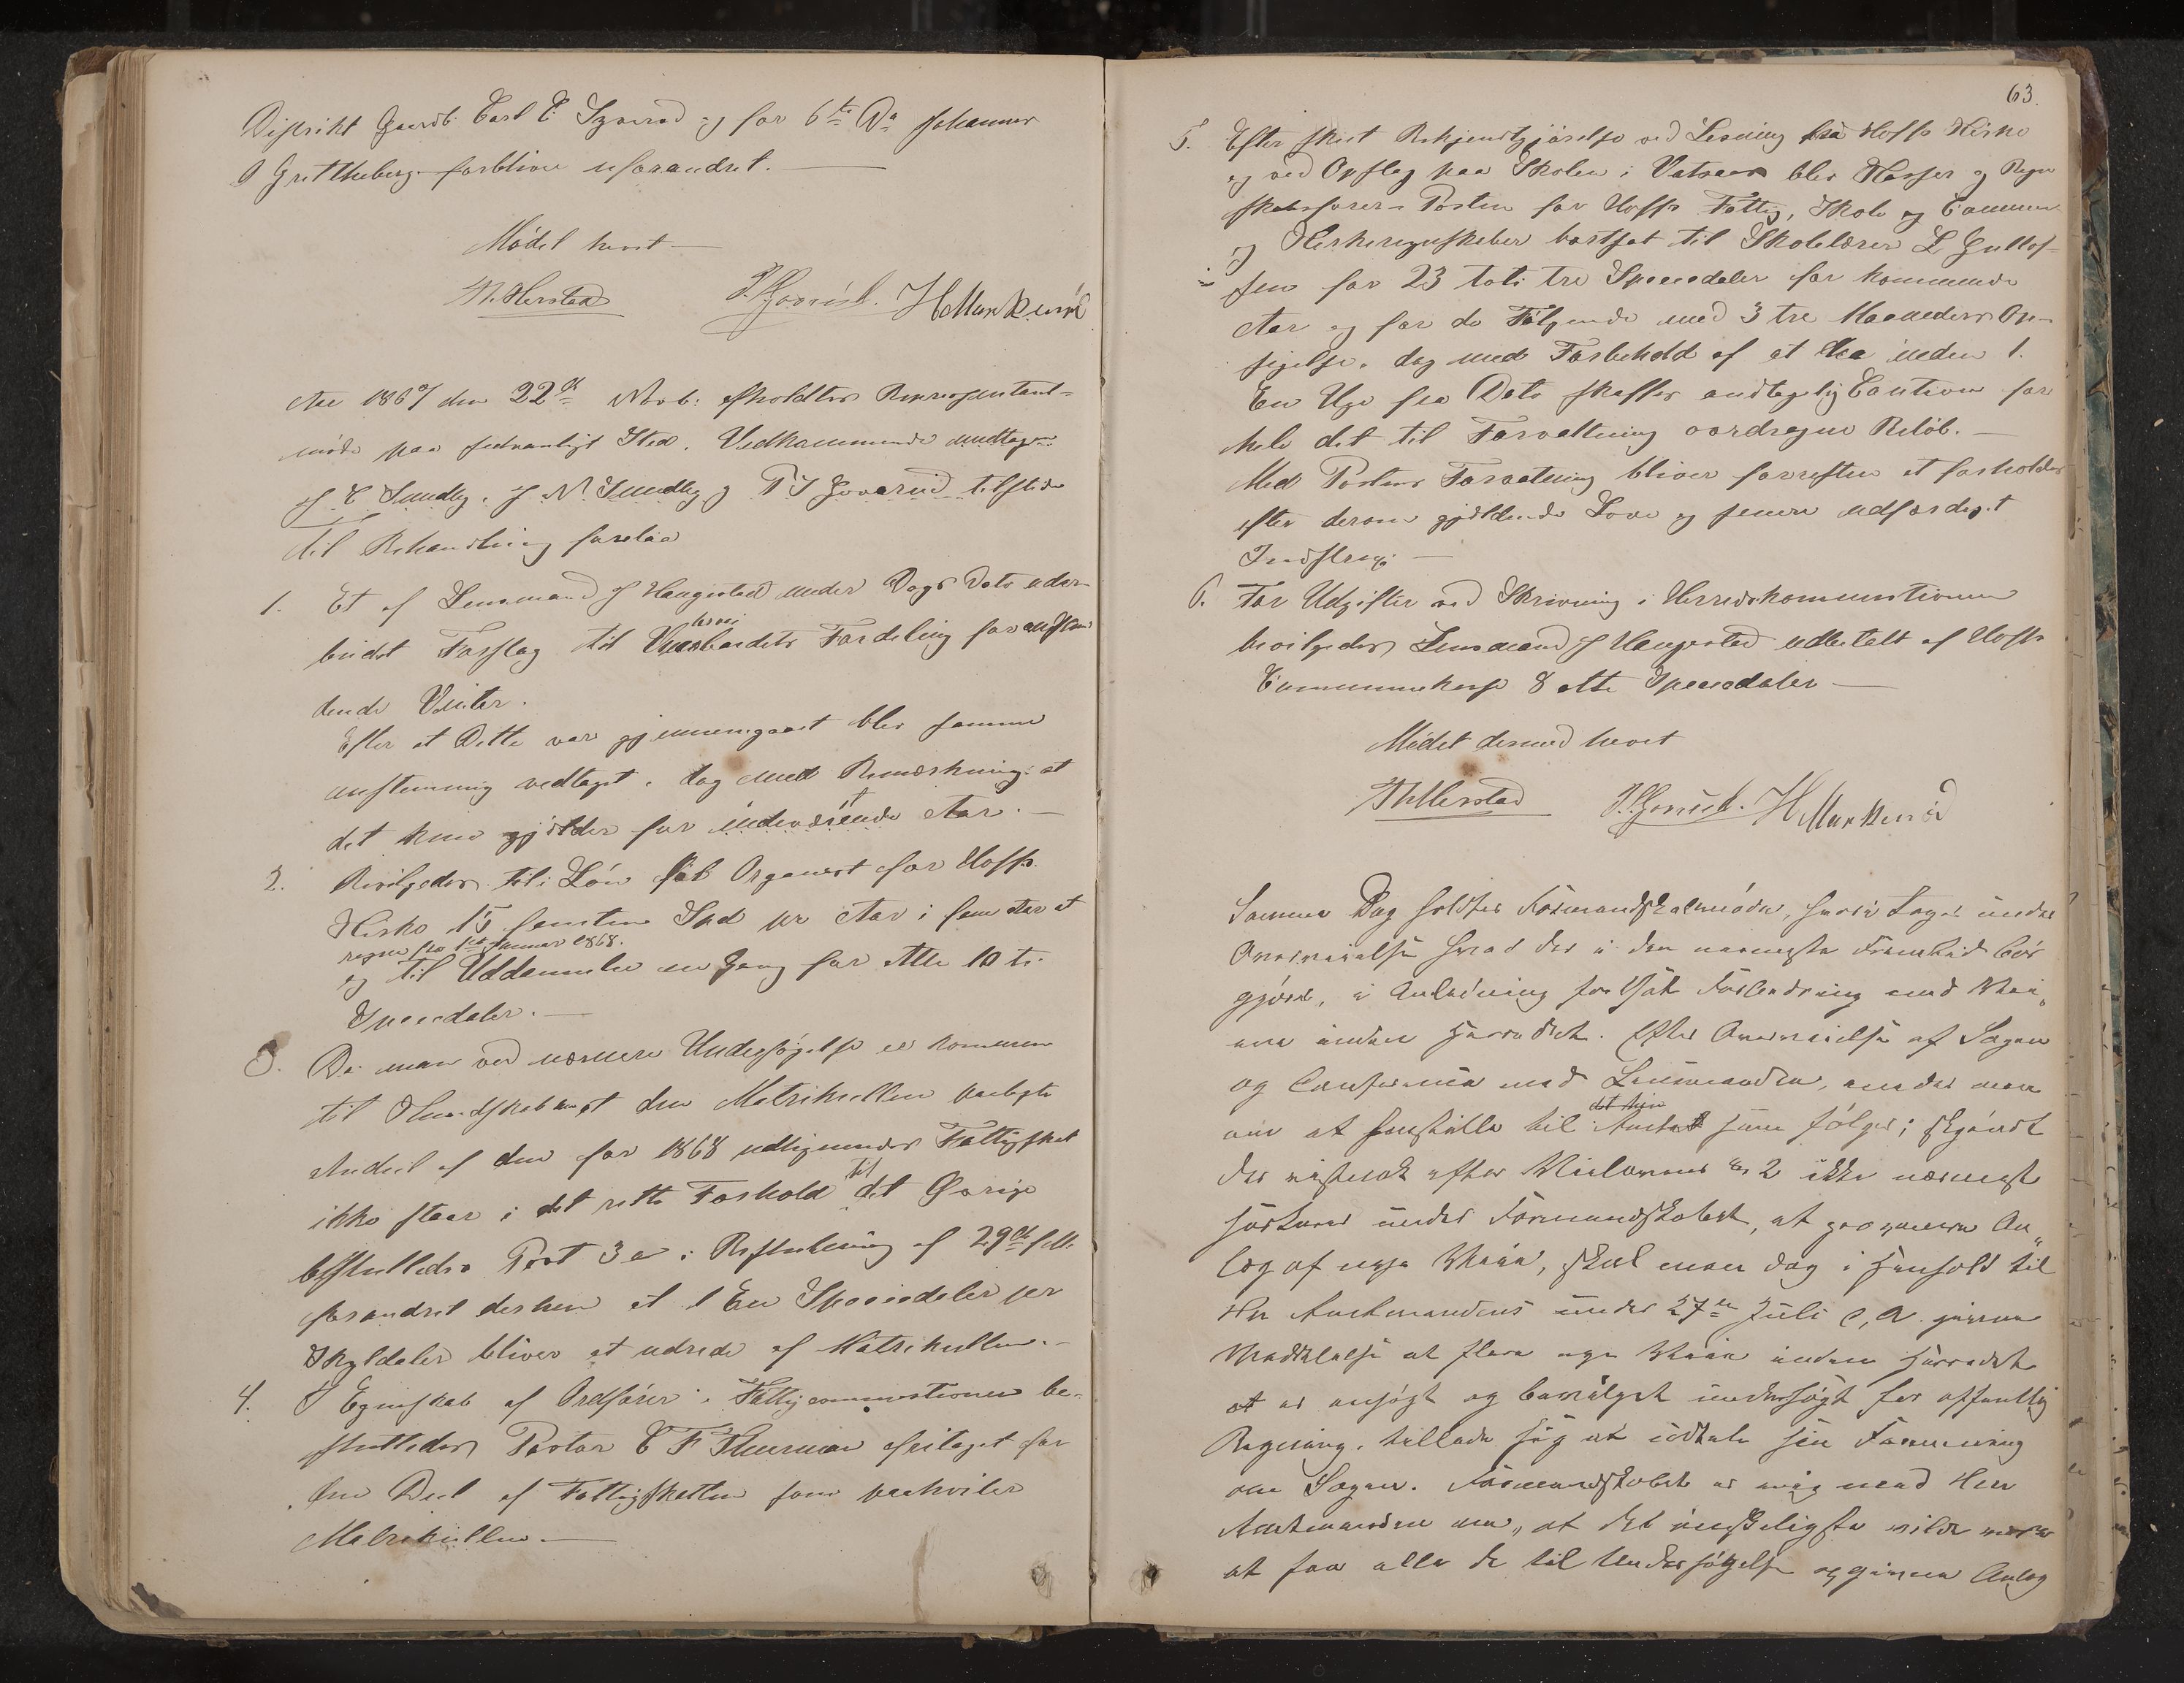 Distrikt Gaardb. Carl C. og for 6te Do Johannes
forbliver uforandret.
Mødet hævet
Aar 1867 den 22de Novb: afholdtes Repræsentant-
møde paa sedvanligt Sted. Vedkommende undtagen
J C Sundby, J N. Sundby og tilstede
Til Behandling forelaa
1. Et af Lensmand J Haugestad under Dags Dato udar-
beidet Forslag til arbeidets Fordeling for
dende Vinter.
Efter at Dette var gjennemgaaet blev samme
enstemmig vedtaget, dog med Bemærkning: at
det kun gjelder for indeværende Aar.
2. Bevilgedes til Løn for Organist for Hoffs
Kirke 15 femten Spd pr Aar i fem Aar at
regne fra 1ste Januar 1868.
og til Uddannelse en Gang for Alle 10 ti
Speciedaler.
3. Da man ved nærmere Undersøgelse er kommen
til Kundskab om at den Matrikullen paalagte
Andeel af den for 1868 udlignendes Fattigskat
ikke staar i det rette Forhold til det Øvrige
besluttedes Post 3 a i Beslutning af 29de
forandret derhen at 1 En Speciedaler per
Skyldaler bliver at udrede af Matrikullen.
4. I Egenskab af Ordfører i Fattigcommistionen be-
sluttedes Pastor C F fritaget for
den Deel af Fattigskatten som paahviler
Matrikullen
63.
5. Efter skeet Bekjendtgjørelse ved Læsning fra Hoffs Kirke
og ved Opslag paa Skolen i Vataas blev Kasser og Regn
skabsfører-Posten for Hoffs Fattig, Skole og Commune
og Kirkeregnskaber bortsat til Skolelærer L Gullof-
sen for 23 toti tre Speciedaler for kommende
Aar og for de Følgende med 3 tre Maaneders Op-
sigelse, dog med Forbehold af at han inden 1.
En Uge fra Dato skaffer antagelig Caution for
hele det til Forvaltning overdragne Beløb.
Med Postens Forvaltning bliver forresten at forholdes
efter derom gjældende Love og senere udfærdiget
Instrux.
6. For Udgifter ved Skrivning i Herredskommistionen
bevilgedes Lensmand J Haugestad udbetalt af Hoffs
Communekasse 8 otte Speciedaler
Mødet dermed hævet
Samme Dag holdtes Formandskabsmøde, hvori toges under
Overveielse hvad der i den nærmeste Fremtid bør
gjøres, i Anledning fortsat Forbedring med Vei-
ene inden Herredet. Efter Overveielse af Sagen
og Conference med Lensmanden, enedes man
om at henstille til Amtet som følger; skjøndt
det vistnok efter Veilovens § 2 ikke nærmest
henhører under Formandskabet, at An-
læg af nye Veie, skal man dog i Henhold til
Hr Amtmandens under 27de Juli d. A. givne
Meddelelse at flere nye Veie inden Herredet
er ansøgt og bevilget undersøgt for offentlig
Regning, tillade sig at udtale sin Formening
om Sagen. Formandskabet er enig med Herr
Amtmanden om, at det ønskeligste vilde være
at faa alle de til Undersøgelse opgivne Anlæg